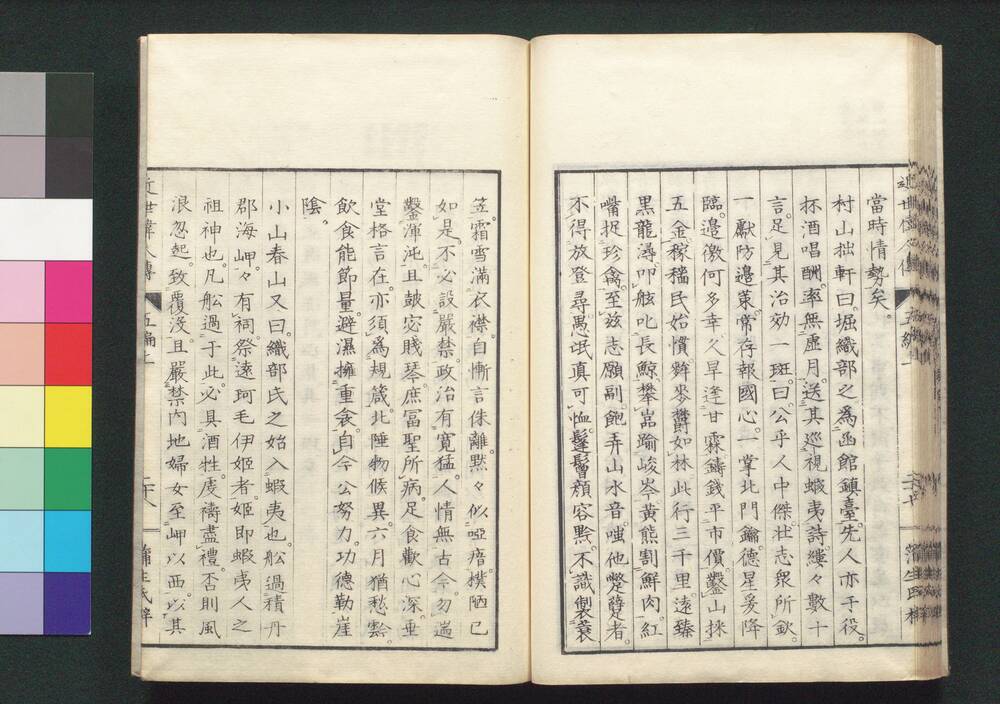 當時情勢矣。
村山拙軒曰。堀織部之為函館鎮臺。先人亦于役。
杯酒唱酬。率無虛月。送其巡視蝦夷詩。縷々數十
言。足見其治効一斑。曰。公乎人中傑。壯志衆所欽。
一獻防邊策。常存報國心。一掌北門鑰。德星爰降
臨。邊徼何多幸。久旱逢甘霖。鑄錢平市價。鑿山採
五金。稼穡民始慣。辨麥欝如林。此行三千里。遠臻
黑龍潯。叩舷叱長鯨。攀嵓踰峻岑。黃熊割鮮肉。紅
嘴捉珍禽。至茲志願副。飽弄山水音。嗤他蹩躠者。
不得放登尋。愚氓眞可恤。鬔鬙頬容黔。不識製蓑
笠。霜雪滿衣襟。自慚言侏離。默々似啞瘖。撲陋已
如是。不必設嚴禁。政治有寬猛。人情無古今。勿遄
鑿渾沌。且鼓宓賤琴。庶冨聖所病。足食歡心深。垂
堂格言在。亦須為規箴。北陲物候異。六月猶愁霒。
飲食能節量。避濕擁重衾。自今公努力。功德勒崖
陰。
小山春山又曰。織部氏之始入蝦夷也。舩過積丹
郡海岬。々有祠。祭遠珂毛伊姬者。姬即蝦夷人之
祖神也。凡舩過于此。必具酒牲。虔禱盡禮。否則風
浪忽起。致覆沒。且嚴禁內地婦女至岬以西。以其
近世偉人傳
五編上
二十八
蒲生氏梓